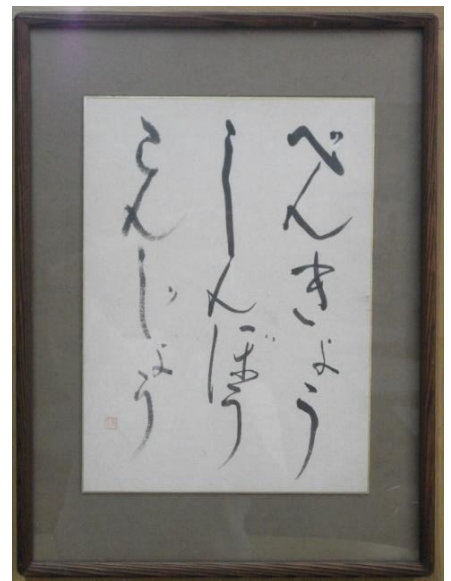 べんきょう
しんぼう
こんじょう